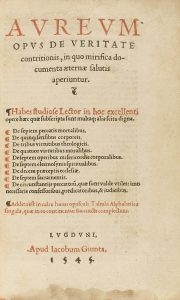 AVREVM
OPVS DE VERITATE
contritionis, in quo mirifica do-
cumenta æternæ salutis
aperiuntur.
Habes studiose Lector in hoc excellenti
opere hæc quæ subscripta sunt multaque alia scitu digna.
De septem peccatis mortalibus.
De quinque sensibus corporis.
De tribus virtutibus theologicis.
De quatuor virtutibus moralibus.
De septem operibus misericordiæ corporalibus.
De septem
De decem præceptis
De septem sacramentis.
De circunstantiis peccatorum, quæ sunt valde utiles
confessoribus, prædicatoribus &
Additæ est in calce huius opusculi, Tabula Alphabetica
singula, quæ in eo continentur
LVGDVNI,
Apud Iacobum Giunta.
1545.